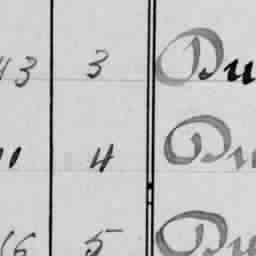 43 3 Du
11 4 Du
16 5 Du